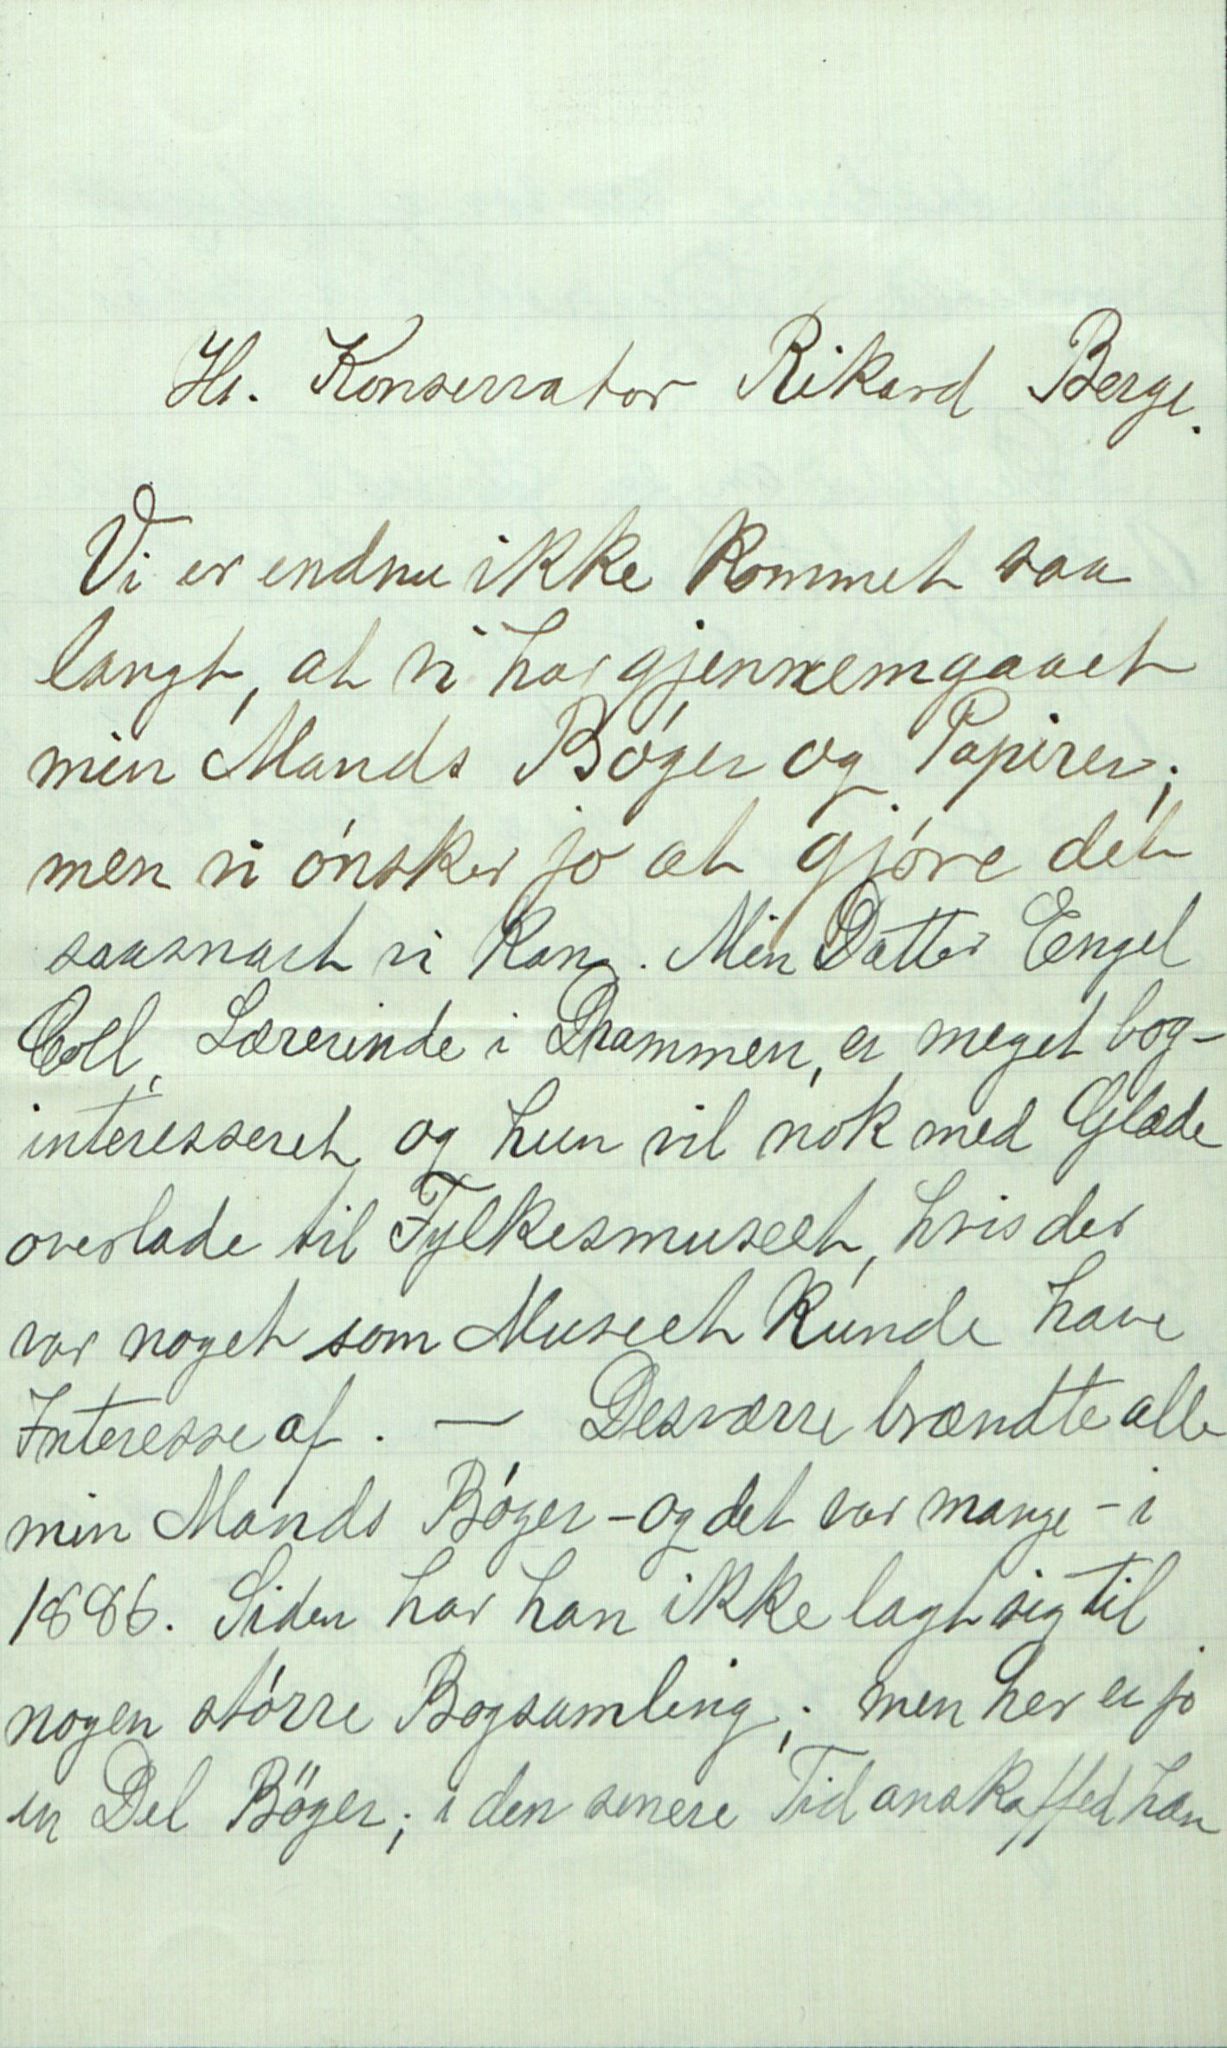 Hr. Konservator Rikard Berge.
Vi er endnu ikke kommet saa
langt, at vi har gjennemgaaet
min Mands Bøger og Papirer;
men vi ønsker jo at gjøre det
saasnart vi kan. Min Datter Engel
Coll, Lærerinde i Drammen, er meget bog-
interesseret, og hun vil nok med Glæde
overlade til Fylkesmuseet, hvis der
var noget som Museet kunde have
Interesse af. — Desværre brændte alle
min Mands Bøger – og det var mange – i
1886. Siden har han ikke lagt sig til
nogen større Bogsamling; men her er jo
en Del Bøger; i den senere Tid anskaffed han